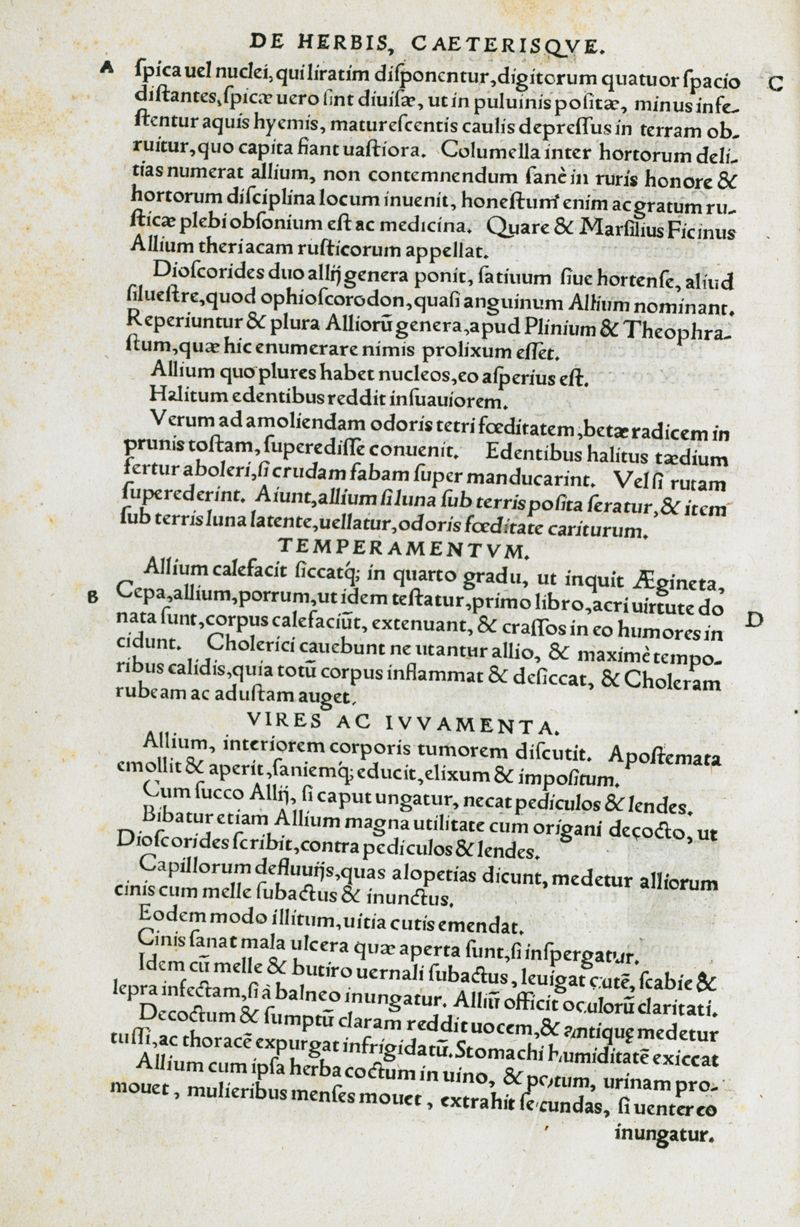 DE HERBIS, CAETERISQVE.
A ſpica uel nuclei, qui liratim diſponentur, digitorum quatuor ſpacio C
diſtantes, ſpicæ uero ſint diuiſæ, ut in puluinis poſitæ, minus infe-
ſtentur aquis hyemis, matureſcentis caulis depreſſus in terram ob-
ruitur, quo capita fiant uaſtiora. Columella inter hortorum deli-
tias numerat allium, non contemnendum ſanè in ruris honore &
hortorum diſciplina locum inuenit, honeſtum enim ac gratum ru-
ſticæ plebi obſonium eſt ac medicina. Quare & Marſilius Ficinus
Allium theriacam ruſticorum appellat.
Dioſcorides duo allij genera ponit, ſatiuum ſiue hortenſe, aliud
ſilueſtre, quod ophioſcorodon, quaſi anguinum Allium nominant.
Reperiuntur & plura Alliorū genera, apud Plinium & Theophra-
ſtum, quæ hic enumerare nimis prolixum eſſet.
Allium quo plures habet nucleos, eo aſperius eſt.
Halitum edentibus reddit inſuauiorem.
Verum ad amoliendam odoris tetri fœditatem, betæ radicem in
prunis toſtam, ſuperediſſe conuenit. Edentibus halitus tædium
fertur aboleri, ſi crudam fabam ſuper manducarint. Vel ſi rutam
ſuperederint. Aiunt, allium ſi luna ſub terris poſita ſeratur, & item
ſub terris luna latente, uellatur, odoris fœditate cariturum.
TEMPERAMENTVM.
Allium calefacit ſiccatq́; in quarto gradu, ut inquit Ægineta,
B Cepa, allium, porrum, ut idem teſtatur, primo libro, acri uirtute do D
nata ſunt, corpus calefaciūt, extenuant, & craſſos in eo humores in
cidunt. Cholerici cauebunt ne utantur allio, & maximè tempo-
ribus calidis, quia totū corpus inflammat & deſiccat, & Choleram
rubeam ac aduſtam auget.
VIRES AC IVVAMENTA.
Allium, interiorem corporis tumorem diſcutit. Apoſtemata
emollit & aperit, ſaniemq́; educit, elixum & impoſitum.
Cum ſucco Allij, ſi caput ungatur, necat pediculos & lendes.
Bibatur etiam Allium magna utilitate cum origani decocto, ut
Dioſcorides ſcribit, contra pediculos & lendes.
Capillorum defluuijs, quas alopetias dicunt, medetur alliorum
cinis cum melle ſubactus & inunctus.
Eodem modo illitum, uitia cutis emendat.
Cinis ſanat mala ulcera quæ aperta ſunt, ſi inſpergatur.
Idem cū melle & butiro uernali ſubactus, leuigat cutē, ſcabie &
lepra infectam, ſi à balneo inungatur. Alliū officit oculorū claritati.
Decoctum & ſumptū claram reddit uocem, & antiquę medetur
tuſſi, ac thoracē expurgat infrigidatū. Stomachi humiditatē exiccat
Allium cum ipſa herba coctum in uino, & potum, urinam pro-
mouet, mulieribus menſes mouet, extrahit ſecundas, ſi uenter eo
inungatur.